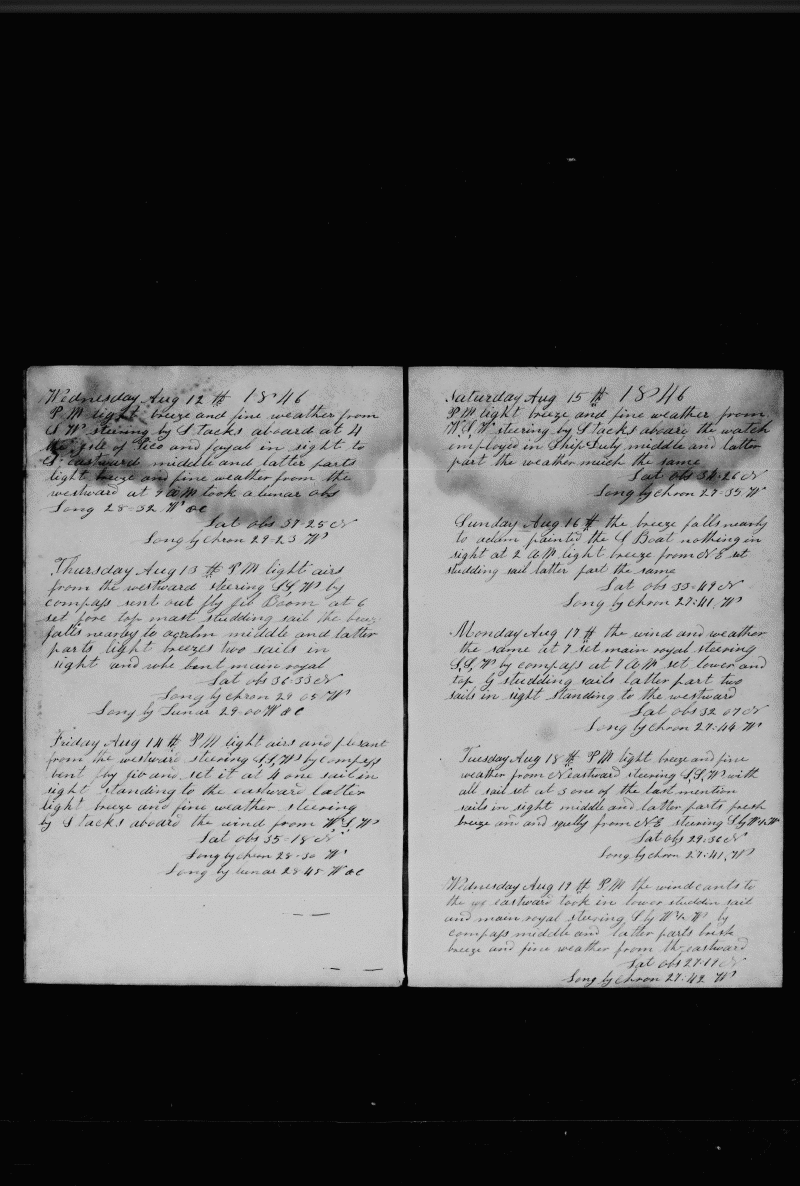 Wednesday Aug 12th 1846
P M light breeze and fine weather from
S W steering by S tacks aboard at 4
the isle of Pico and fayal in sight to
S eastward middle and latter parts
light breeze and fine weather from the
westward at 7 AM took a lunar obs
Long 28=32 W &c
Lat obs 37=25 N
Long by chron 29=23 W
Thursday Aug 13th P M light airs
from the westward steering S,S,W by
compass sent out fly jib Boom at 6
set fore top mast studding sail the breeze
falls nearby to a calm middle and latter
parts light breezes two sails in
sight and bent main royal
Lat obs 36=33 N
Long by chron 29=05 W
Long by Lunar 29=00 W &c
Friday Aug 14th P M light airs and plesant
from the westward steering S,S,W by compass
bent fly jib and set it at 4 one sail in
sight standing to the eastward latter
light breeze and fine weather steering
by S tacks aboard the wind from W,S,W
Lat obs 35=18 N
Long by chron 28=30 W
Long by lunar 28=45 W &c
Saturday Aug 15th 1846
P M light breeze and fine weather from
W,S,W steering by S tacks aboard the watch
employed in Ship Duty middle and latter
part the weather much the same
Lat obs 34=26 N
Long by chron 27=35 W
Sunday Aug 16th the breeze falls nearby
to a clam painted the S Boat nothing in
sight at 2 A M light breeze from N E set
studding sail latter part the same
Lat obs 33=49 N
Long by chron 27=41 W
Monday Aug 17th the wind and weather
the same at 7 set main royal steering
S,S,W by compass at 7 A M set lower and
top G studding sails latter part two
sails in sight standing to the westward
Lat obs 32=07 N
Long by chron 27=44 W
Tuesday Aug 18th P M light breeze and fine
weather from N eastward steering S,S,W with
all sail set at 3 one of the last mention
sails in sight middle and latter parts fresh
breeze and sqully from N E steering S by W ½ W
Lat obs 29=36 N
Long by chron 27=41 W
Wednesday Aug 19th P M the wind cants to
the eastward took in lower studden sail
and main royal steering S by W ½ W by
compass middle and latter parts bresk
breeze and fine weather from the eastward
Lat obs 27=17 N
Long by chron 27=42 W